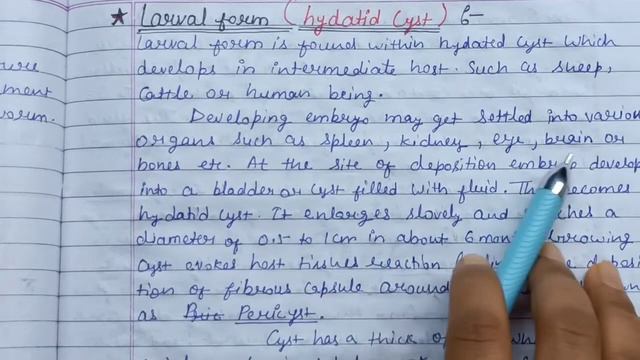 ★ Larval form (hydatid cyst) :-
larval form is found within hydated cyst which
develops in intermediate host. Such as sheep,
Cattle or human being.
Developing embryo may get settled into variou
organs such as spleen, kidney, eye, brain or
bones etc. At the site of deposition embryo develop
into a bladder or cyst filled with fluid. becomes
hydatid cyst. It enlarges slovely and a
diameter of 0.5 to 1cm in about 6 mon
cyst evokes host tissues reaction
tion of fibrous capsule around
as Pericyst.
Cyst has a thick